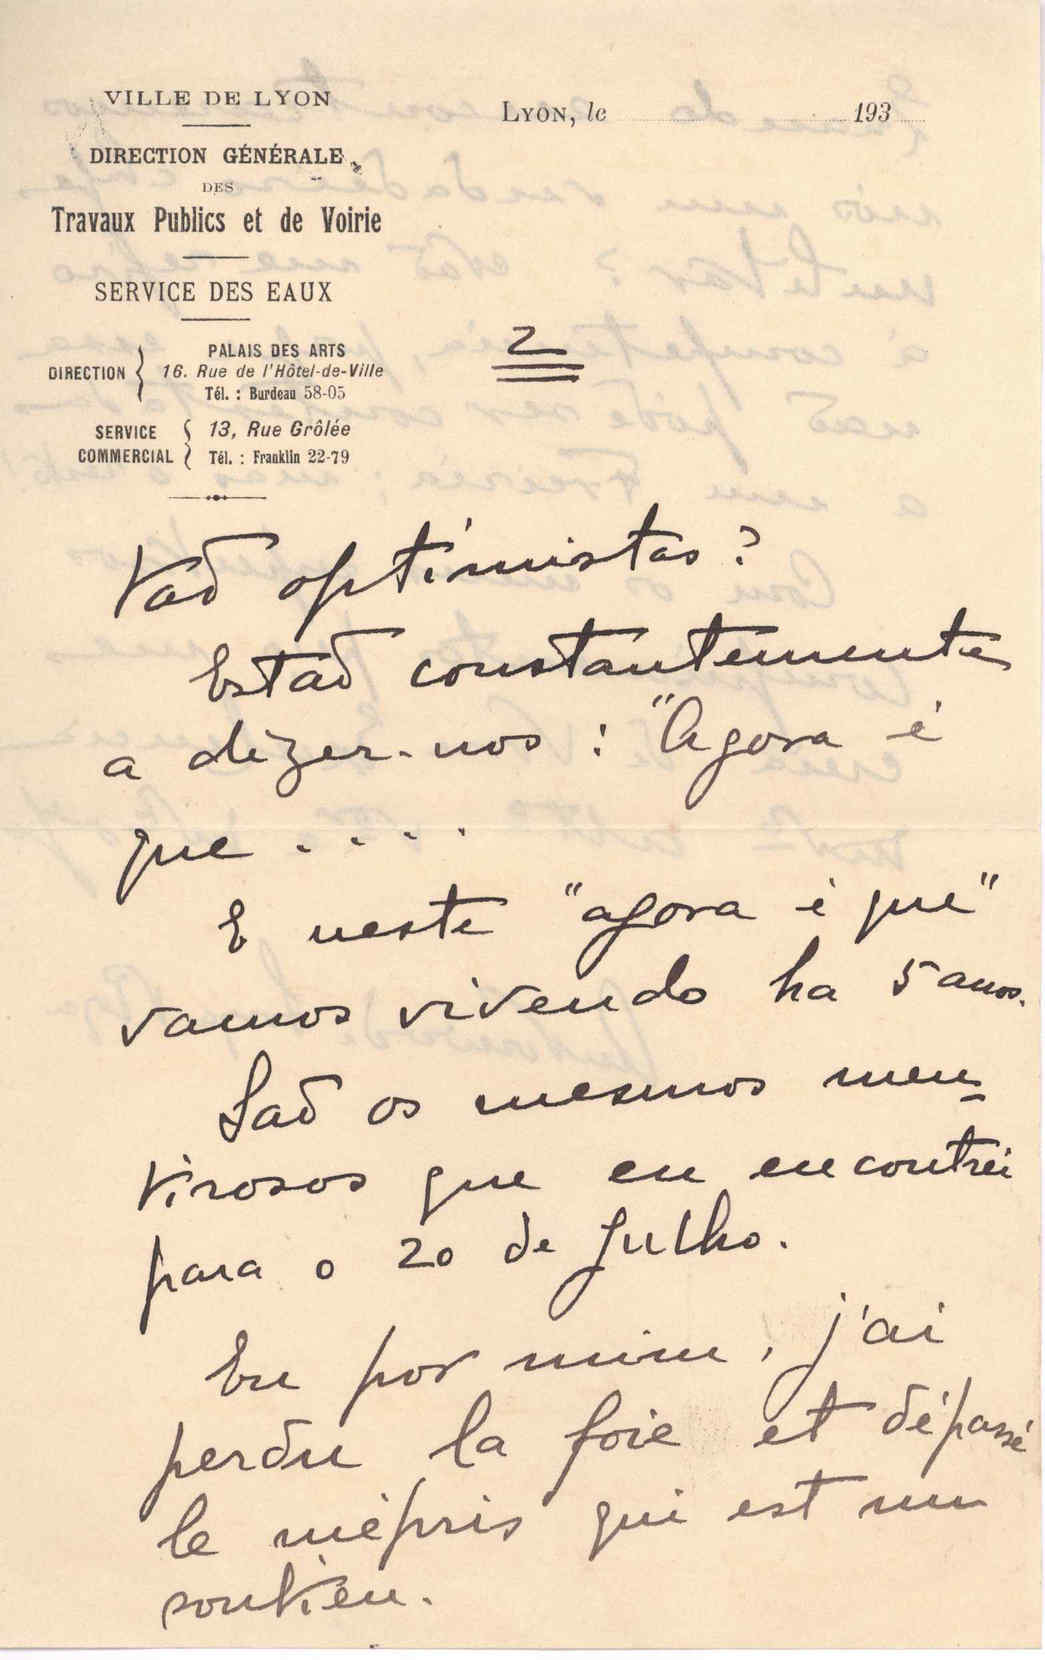 VILLE DE LYON
DIRECTION GÉNÉRALE
DES
Travaux Publics et de Voirie
SERVICE DES EAUX
DIRECTION { PALAIS DES ARTS
16. Rue de l'Hôtel-de-Ville
Tél. : Burdeau 58-05
SERVICE COMMERCIAL { 13, Rue Grôlée
Tél. : Franklin 22-79
LYON, le 193
2
tão optimistas ?
Estão constantemente
a dizer-nos : "Agora é
que ....
E neste "agora é que"
vamos vivendo ha 5 anos.
São os mesmos men-
tirosos que eu encontrei
para o 20 de Julho.
Eu por mim, j'ai
perdu la foie et dépassé
le mépris qui est un
soutien.